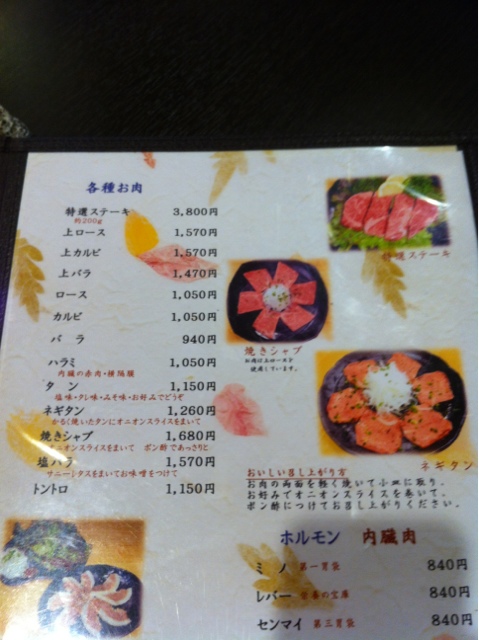 各種お肉
特選ステーキ 3,800円
約200g
上ロース 1,570円
上カルビ 1,570円
上バラ 1,470円
ロース 1,050円
カルビ 1,050円
バラ 940円
ハラミ 1,050円
内臓の赤肉・横隔膜
タン 1,150円
塩味・タレ味・みそ味・お好みでどうぞ
ネギタン 1,260円
かるく焼いたタンにオニオンスライスをまいて
焼きシャブ 1,680円
オニオンスライスをまいて ポン酢であっさりと
塩バラ 1,570円
サニーレタスをまいてお味噌をつけて
トントロ 1,150円
特選ステーキ
焼きシャブ
お肉は上ロースト
使用しています。
ネギタン
おいしい召し上がり方
お肉の両面を軽く焼いて小皿に取り、
お好みでオニオンスライスを巻いて、
ポン酢につけてお召し上がりください。
ホルモン 内臓肉
ミノ 第一胃袋 840円
レバー 栄養の宝庫 840円
センマイ 第三胃袋 840円